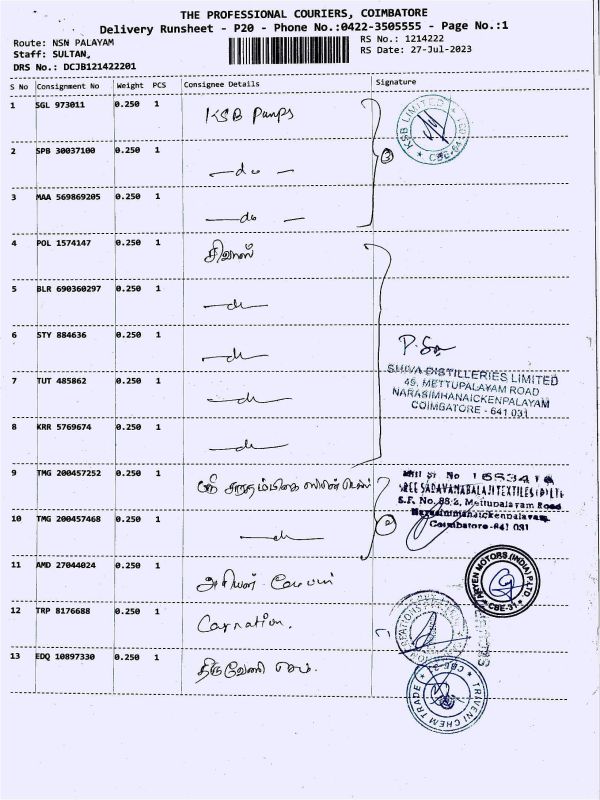 THE PROFESSIONAL COURIERS, COIMBATORE
Delivery Runsheet - P20 - Phone No.:0422-3505555 - Page No.:1
Route: NSN PALAYAM
RS No.: 1214222
Staff: SULTAN,
RS Date: 27-Jul-2023
DRS No.: DCJB121422201
S No Consignment No Weight PCS Consignee Details Signature
1 SGL 973011 0.250 1 KSB Pumps
KSB LIMITED * CBE-641031 *
2 SPB 30037100 0.250 1 — do —
3
3 MAA 569869205 0.250 1 — do —
4 POL 1574147 0.250 1 சிவாஸ்
5 BLR 690360297 0.250 1 — do —
6 STY 884636 0.250 1 — do —
SHIVA DISTILLERIES LIMITED
7 TUT 485862 0.250 1 — do —
45, METTUPALAYAM ROAD
NARASIMHANAICKENPALAYAM
COIMBATORE - 641 031
8 KRR 5769674 0.250 1 — do —
9 TMG 200457252 0.250 1 ஸ்ரீ
SREE SADAYAMABALAJI TEXTILES (P) LTD
S.F. No. 86/2, Mettupalayam Road
Narasimmanaickenpalayam,
Coimbatore-641 031
10 TMG 200457468 0.250 1 — do —
11 AMD 27044024 0.250 1
MOTORS (INDIA) P LTD * CBE-31 *
12 TRP 8176688 0.250 1 Carnation.
13 EDQ 10897330 0.250 1 திருவேணி கெம்.
TRIVENI CHEM TRADE * CBE-31